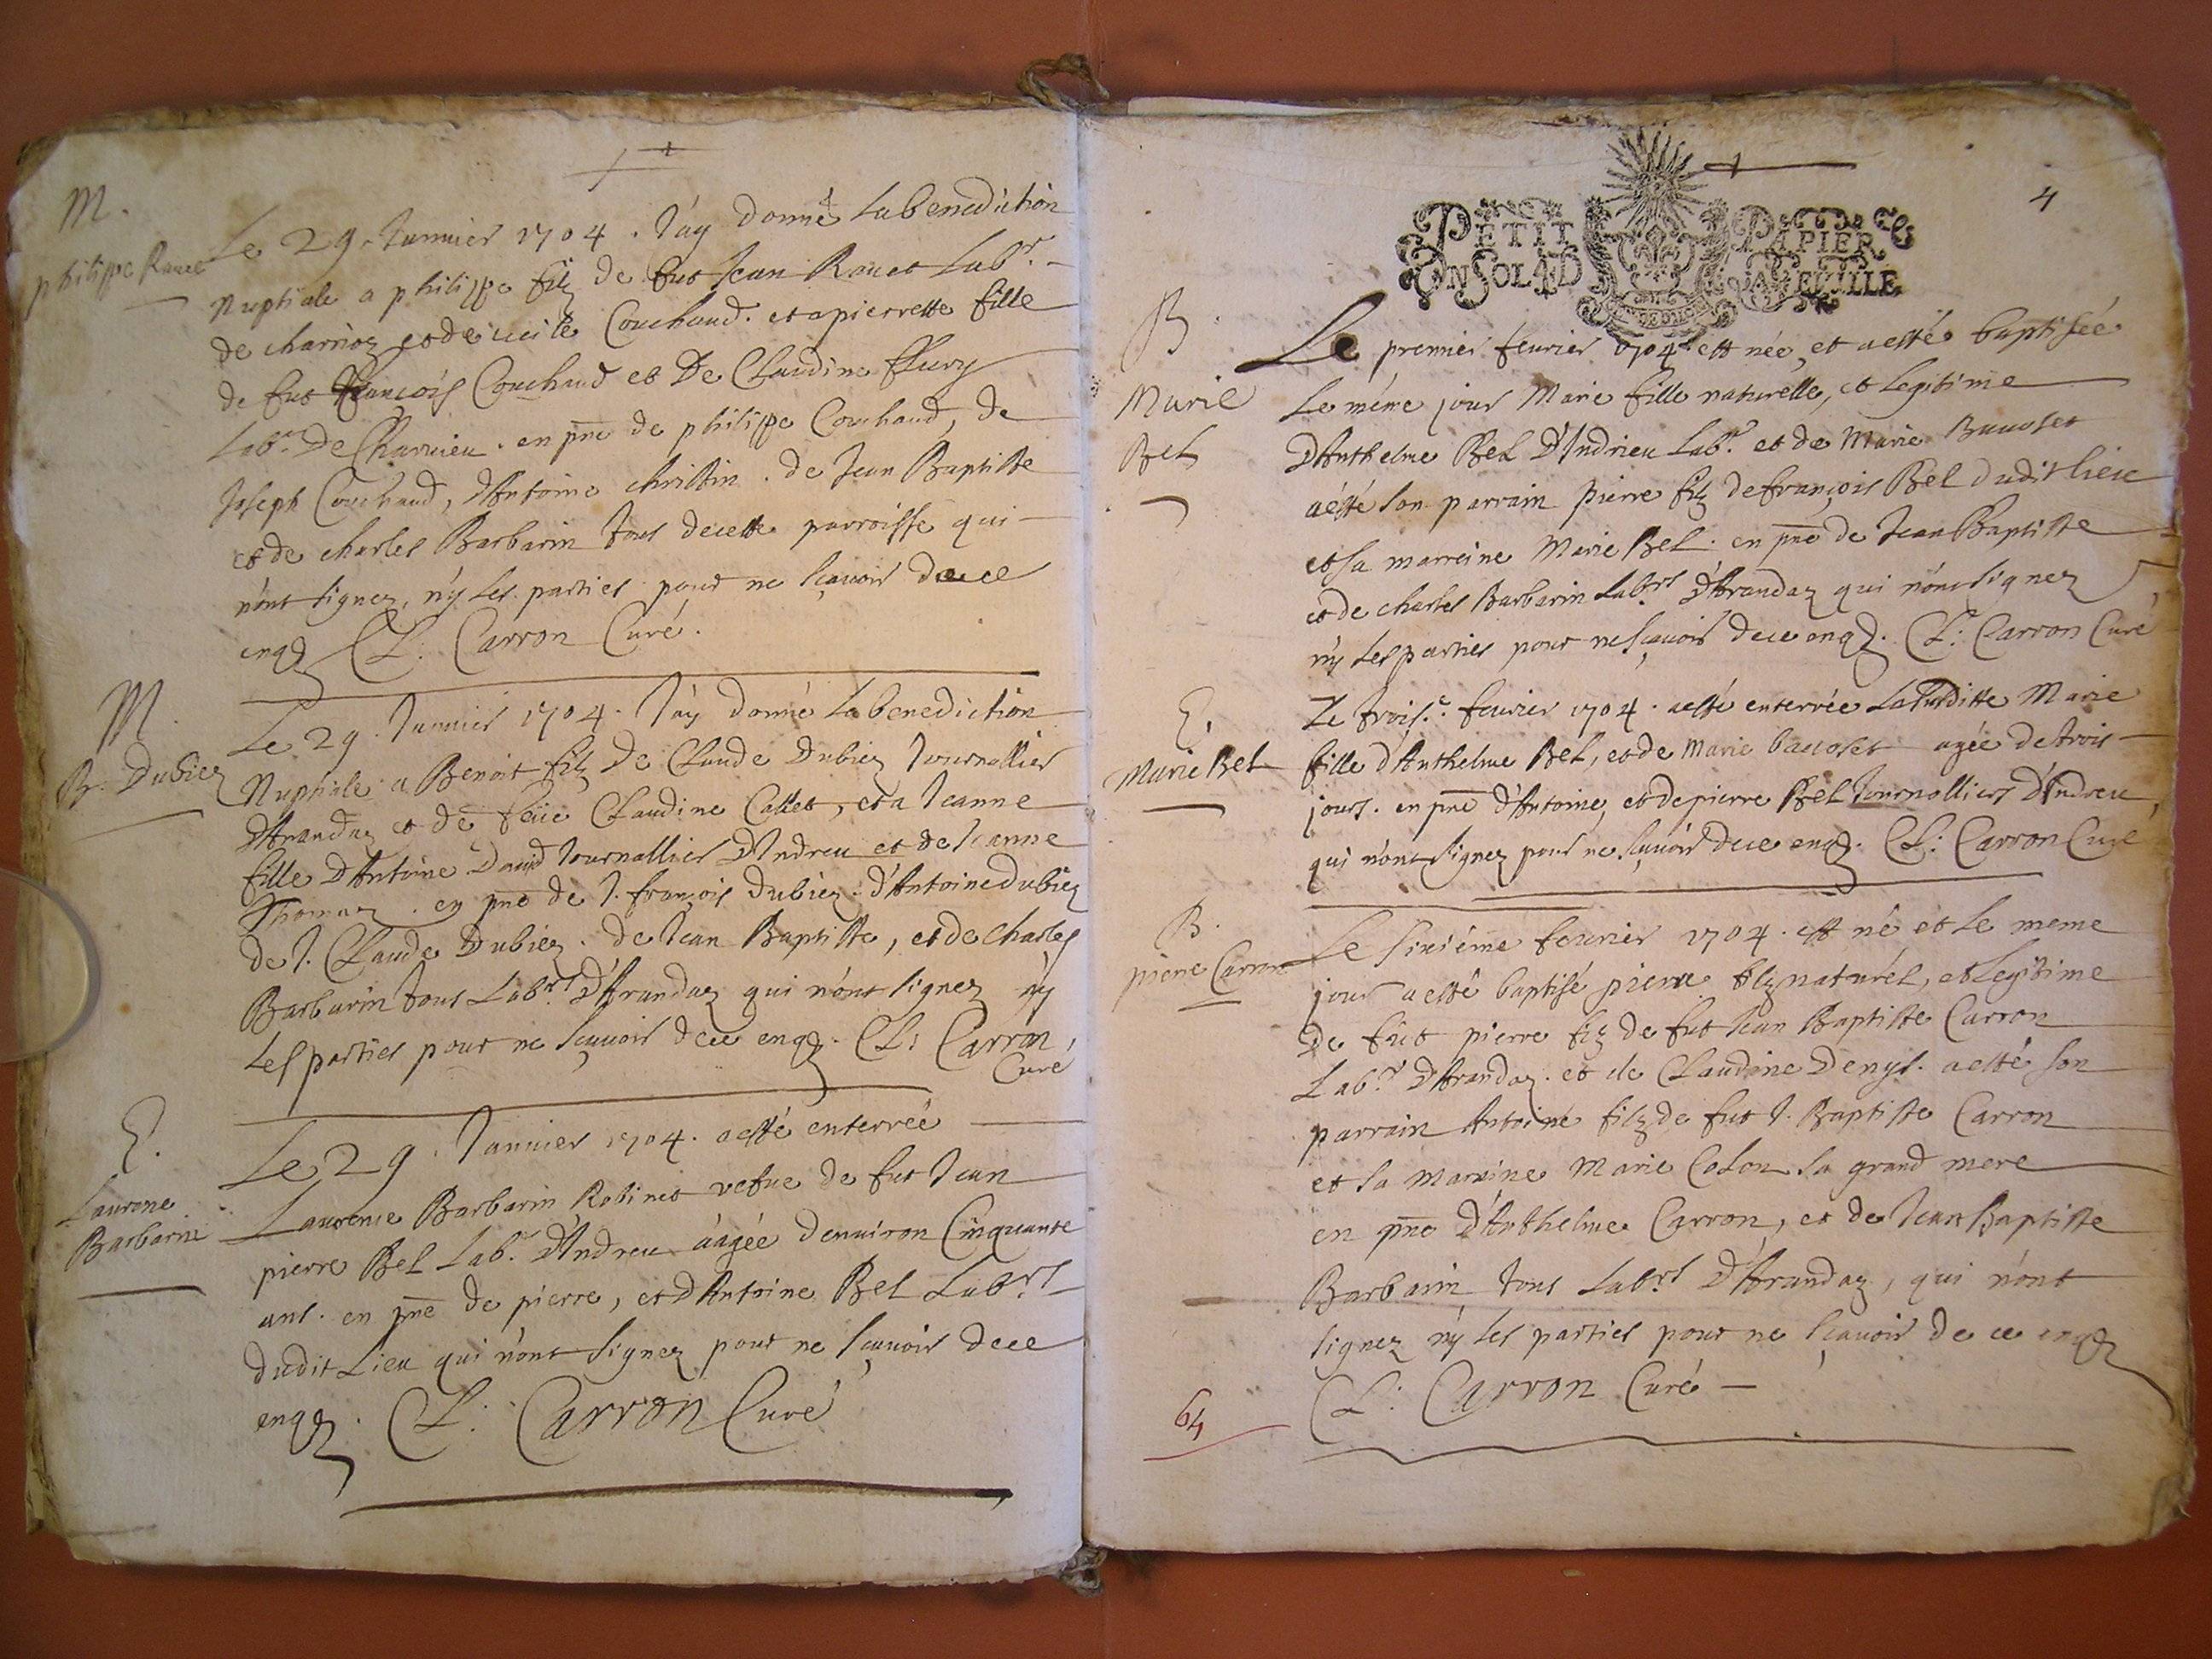 M.
philippe Rauet
Le 29. Januier 1704. J'ay donné La benediction
Nuptiale a philippe filz de fut Jean Rauet Labr.
de charrioz et de Couchaud. et a pierrette fille
de fut françois Couchaud et De Claudine fleury
Labr. De Charuieu. en pne de philippe Couchaud, de
Joseph Couchaud, d'Antoine christin. de Jean Baptiste
et de charles Barbarin tous de cette parroisse qui
n'ont signez, n'y Les parties pour ne sçauoir de ce
enqz CL: Carron Curé.
M.
B. Dubiez
Le 29. Januier 1704. J'ay donné La benediction
Nuptiale a Benoit filz de Claude Dubiez Journallier
D'Arandaz et de feüe Claudine Callet, et a Jeanne
fille D'Antoine Dauid Journallier D'Indreu et de Jeanne
Thomaz. en pne de J. françois dubiez. d'Antoine dubiez
de J. Claude Dubiez. de Jean Baptiste, et de charles
Barbarin tous Labrs D'Arandaz qui n'ont signez n'y
Les parties pour ne sçauoir de ce enqz. CL: Carron,
Curé
E.
Laurone
Barbarin
Le 29. Januier 1704. a esté enterrée
Laurence Barbarin Robinet vefue de fut Jean
pierre Bel Labr. D'Indreu aâgée d'enuiron Cinquante
ans. en pne de pierre, et D'Antoine Bel Labrs
dudit Lieu qui n'ont signez pour ne sçauoir de ce
enqz. CL: Carron Curé
4
PETIT PAPIER
UN SOL 4 D LA FEUILLE
B.
Marie
Bel
Le premier feurier 1704 est née, et a esté baptisée
Le méme jour Marie fille naturelle, et Legitime
D'Anthelme Bel D'Indrieu Labr. et de Marie Bauoset
a esté son parrain pierre filz de françois Bel dudit lieu
et sa marreine Marie Bel. en pne de Jean Baptiste
et de charles Barbarin Labrs D'Arandaz qui n'ont signez
n'y Les parties pour ne sçauoir de ce enqz. CL: Carron Curé
E.
Marie Bel
Le trois.e feurier 1704. a esté enterrée La susditte Marie
fille d'Anthelme Bel, et de Marie bauoset agée de trois
jours. en pne d'Antoine, et de pierre Bel Journalliers D'Indreu,
qui n'ont signez pour ne sçauoir de ce enqz. CL: Carron Curé
B.
pierre Carron
Le sixiéme feurier 1704. est né et Le meme
jour a esté baptisé pierre filz naturél, et Legitime
De fut pierre filz de fut Jean Baptiste Carron
Labr. D'Arandaz. et de Claudine Denys. a esté son
parrain Antoine filz de fut J. Baptiste Carron
et sa marreine Marie Colon sa grand mere
en pne D'Anthelme Carron, et de Jean Baptiste
Barbarin tous Labrs D'Arandaz, qui n'ont
signez n'y Les parties pour ne sçauoir de ce enqz
CL: Carron Curé
64